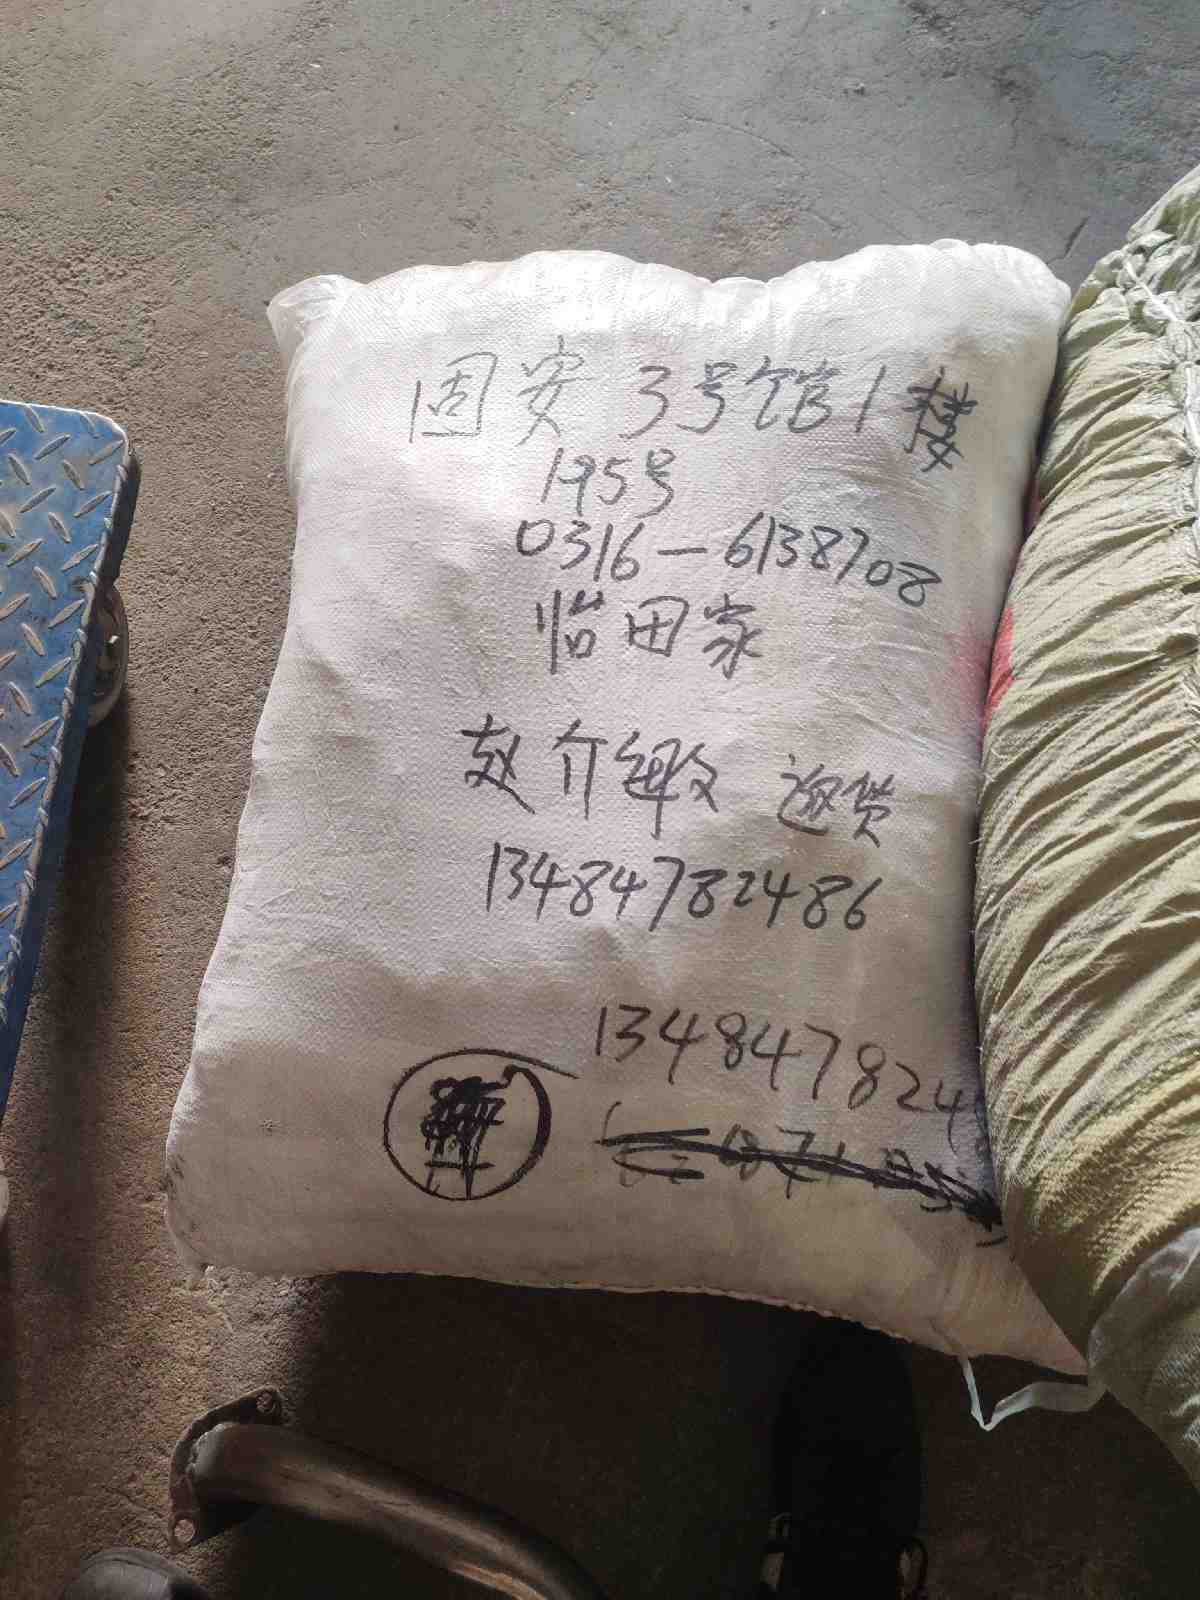 固安 3号馆1楼
175号
0316—6138708
怡田家
赵介 退货
13484782486
1348478248